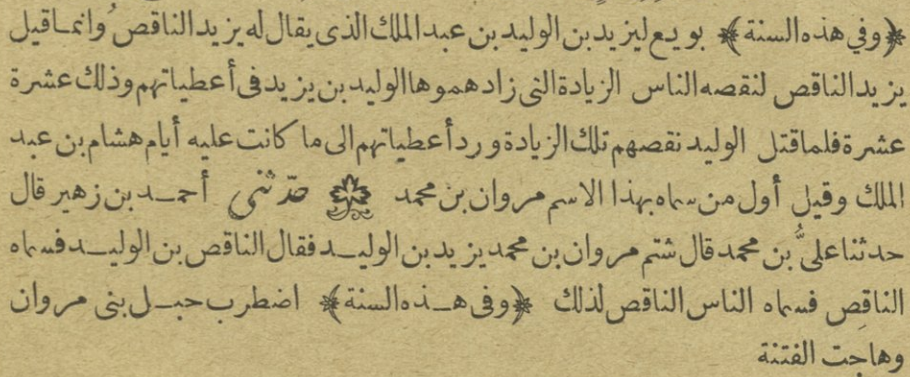 ﴿وفي هذه السنة﴾ بويع ليزيد بن الوليد بن عبد الملك الذى يقال له يزيد الناقص وانما قيل
يزيد الناقص لنقصه الناس الزيادة التى زادهموها الوليد بن يزيد فى أعطياتهم وذلك عشرة
عشرة فلما قتل الوليد نقصهم تلك الزيادة ورد أعطياتهم الى ما كانت عليه أيام هشام بن عبد
الملك وقيل أول من سماه بهذا الاسم مروان بن محمد حدّثنى أحمد بن زهير قال
حدثنا علىُّ بن محمد قال شتم مروان بن محمد يزيد بن الوليد فقال الناقص بن الوليد فسماه
الناقص فسماه الناس الناقص لذلك ﴿وفى هذه السنة﴾ اضطرب حبل بنى مروان
وهاجت الفتنة